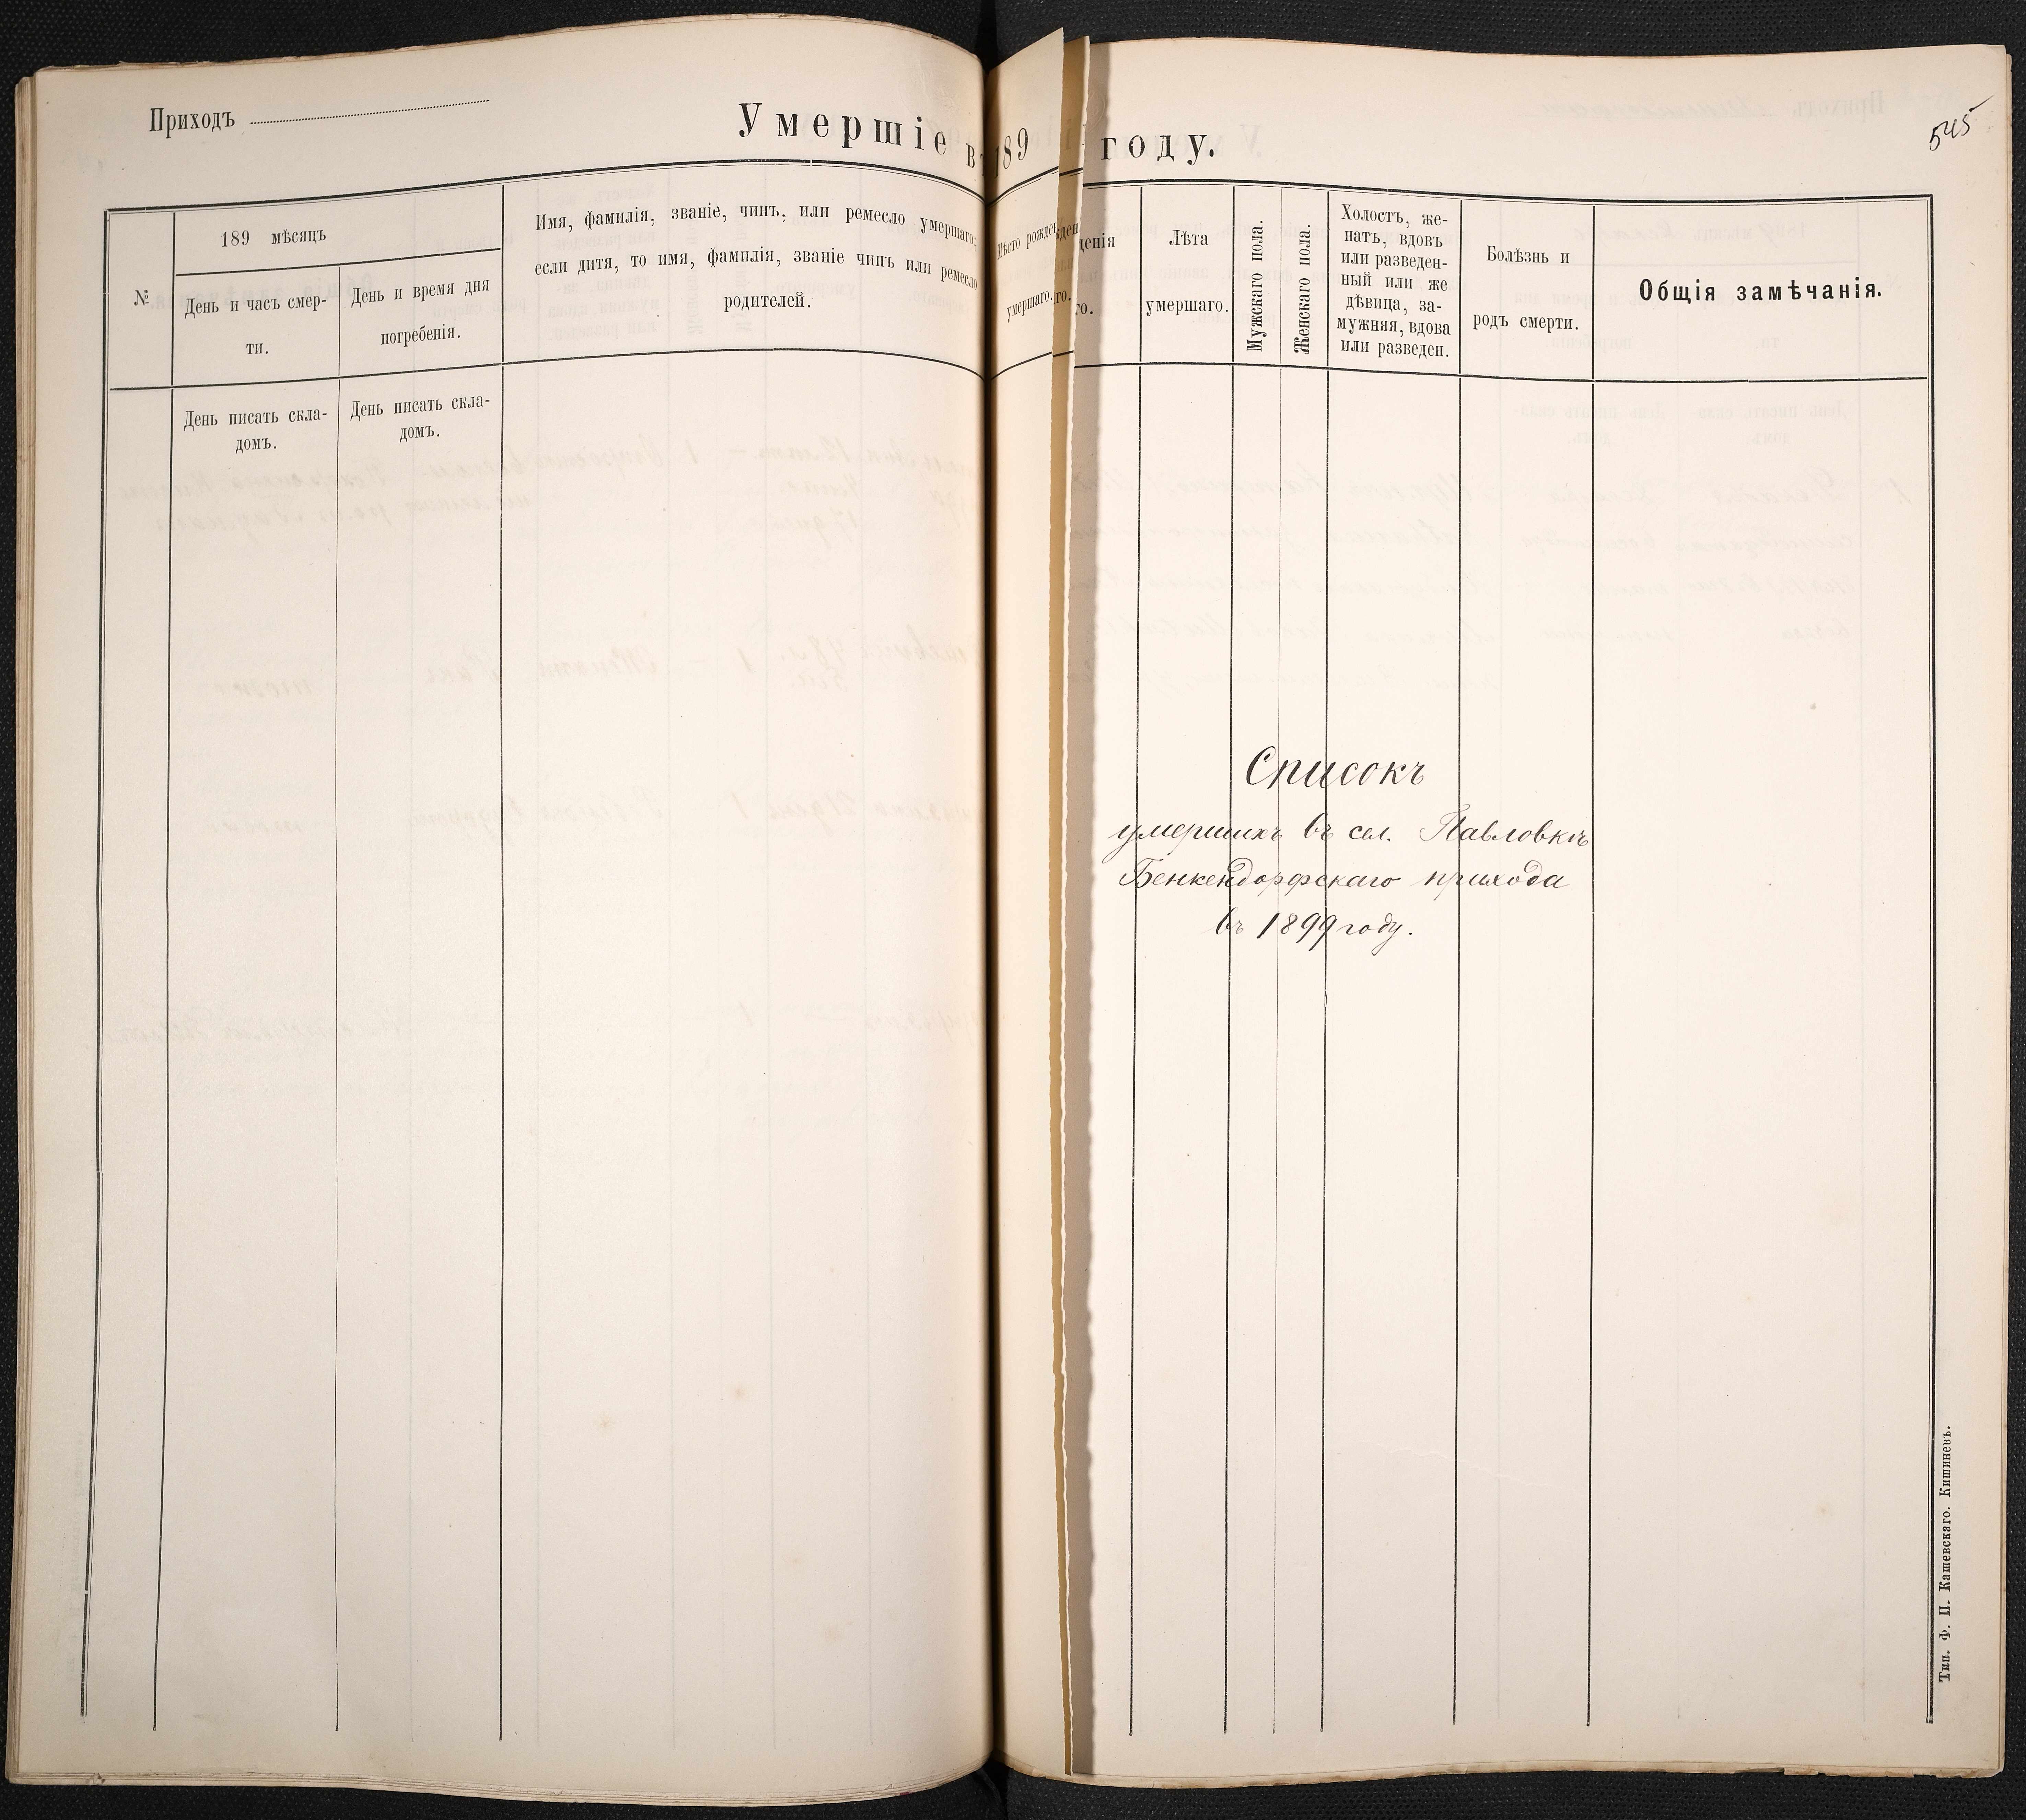 Приходъ
Умершіе въ 189 году.
545
№
189 мѣсяцъ
День и часъ смер-
ти.
День и время дня
погребенія.
Имя, фамилія, званіе, чинъ, или ремесло умершаго;
если дитя, то имя, фамилія, званіе чинъ или ремесло
родителей.
Мѣсто рожденія
умершаго.
Лѣта
умершаго.
Мужскаго пола.
Женскаго пола.
Холостъ, же-
натъ, вдовъ
или разведен-
ный или же
дѣвица, за-
мужняя, вдова
или разведен.
Болѣзнь и
родъ смерти.
Общія замѣчанія.
День писать скла-
домъ.
День писать скла-
домъ.
Списокъ
умершихъ въ сел. Павловкѣ
Бенкендорфскаго прихода
въ 1899 году.
Тип. Ф. П. Кашевскаго. Кишиневъ.